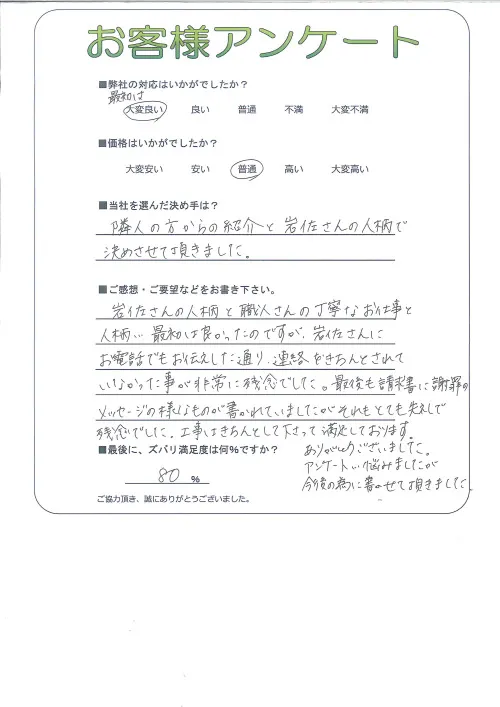 お客様アンケート
■弊社の対応はいかがでしたか？
最初は
大変良い 良い 普通 不満 大変不満
■価格はいかがでしたか？
大変安い 安い 普通 高い 大変高い
■当社を選んだ決め手は？
隣人の方からの紹介と岩佐さんの人柄で
決めさせて頂きました。
■ご感想・ご要望などをお書き下さい。
岩佐さんの人柄と職人さんの丁寧なお仕事と
人柄… 最初は良かったのですが、岩佐さんに
お電話でもお伝えした通り、連絡をきちんとされて
いなかった事が非常に残念でした。最後も請求書に謝罪の
メッセージの様なものが書かれていましたがそれもとても失礼で
残念でした。工事はきちんとして下さって満足しております。
■最後に、ズバリ満足度は何％ですか？
80 ％
ありがとうございました。
アンケート…悩みましたが
今後の為に書かせて頂きました。
ご協力頂き、誠にありがとうございました。